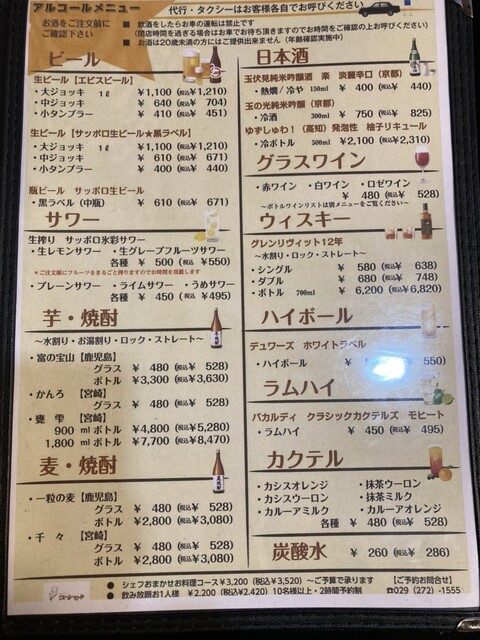 アルコールメニュー
代行・タクシーはお客様各自でお呼びください
お酒をご注文前に
ご確認下さい
■ 飲酒をしたらお車の運転は禁止です
(閉店時間を過ぎる場合はお車でお待ち頂きますのでお時間をご確認の上お呼びください)
■ お酒は20歳未満の方にはご提供出来ません(年齢確認実施中)
ビール
生ビール【エビスビール】
・大ジョッキ 1ℓ ¥1,100(税込¥1,210)
・中ジョッキ ¥ 640(税込¥ 704)
・小タンブラー ¥ 410(税込¥ 451)
生ビール【サッポロ生ビール★黒ラベル】
・大ジョッキ 1ℓ ¥1,100(税込¥1,210)
・中ジョッキ ¥ 610(税込¥ 671)
・小タンブラー ¥ 400(税込¥ 440)
瓶ビール サッポロ生ビール
・黒ラベル(中瓶) ¥ 610(税込¥ 671)
サワー
生搾り サッポロ氷彩サワー
・生レモンサワー ・生グレープフルーツサワー
各種 ¥ 500(税込 ¥550)
*ご注文順にフルーツをまるごと搾りますのでお時間を頂戴します
・プレーンサワー ・ライムサワー ・うめサワー
各種 ¥ 450(税込 ¥495)
芋・焼酎
～水割り・お湯割り・ロック・ストレート～
・富の宝山【鹿児島】
グラス ¥ 480(税込¥ 528)
ボトル ¥3,300(税込¥3,630)
・かんろ【宮崎】
グラス ¥ 480(税込¥ 528)
・甕 雫 【宮崎】
900 mlボトル ¥4,800(税込¥5,280)
1,800 mlボトル ¥7,700(税込¥8,470)
麦・焼酎
・一粒の麦【鹿児島】
グラス ¥ 480(税込¥ 528)
ボトル ¥2,800(税込¥3,080)
・千 々 【宮崎】
グラス ¥ 480(税込¥ 528)
ボトル ¥2,800(税込¥3,080)
日本酒
玉伏見純米吟醸酒 楽 淡麗辛口(京都)
・熱燗/冷や 150ml ¥ 400(税込¥ 440)
玉の光純米吟醸(京都)
・冷酒 300ml ¥ 750(税込¥ 825)
ゆずしゅわ!(高知)発泡性 柚子リキュール
・冷ボトル 500ml ¥2,100(税込¥2,310)
グラスワイン
・赤ワイン ・白ワイン ・ロゼワイン
¥ 480(税込¥ 528)
～ボトルワインリストは別メニューをご覧ください～
ウィスキー
グレンリヴィット12年
～水割り・ロック・ストレート～
・シングル ¥ 580(税込¥ 638)
・ダブル ¥ 680(税込¥ 748)
・ボトル 700ml ¥ 6,200(税込¥6,820)
ハイボール
デュワーズ ホワイトラベル
・ハイボール 550)
ラムハイ
バカルディ クラシックカクテルズ モヒート
・ラムハイ ¥ 450(税込¥ 495)
カクテル
・カシスオレンジ ・抹茶ウーロン
・カシスウーロン ・抹茶ミルク
・カルーアミルク ・カルーアオレンジ
各種 ¥ 480(税込¥ 528)
炭酸水 ¥ 260(税込¥ 286)
● シェフおまかせお料理コース¥3,200(税込¥3,520)～ご予算で承ります
● 飲み放題お1人様 ¥2,200(税込¥2,420)10名様以上・2時間予約制
【ご予約お問合せ】
☎029(272)-1555